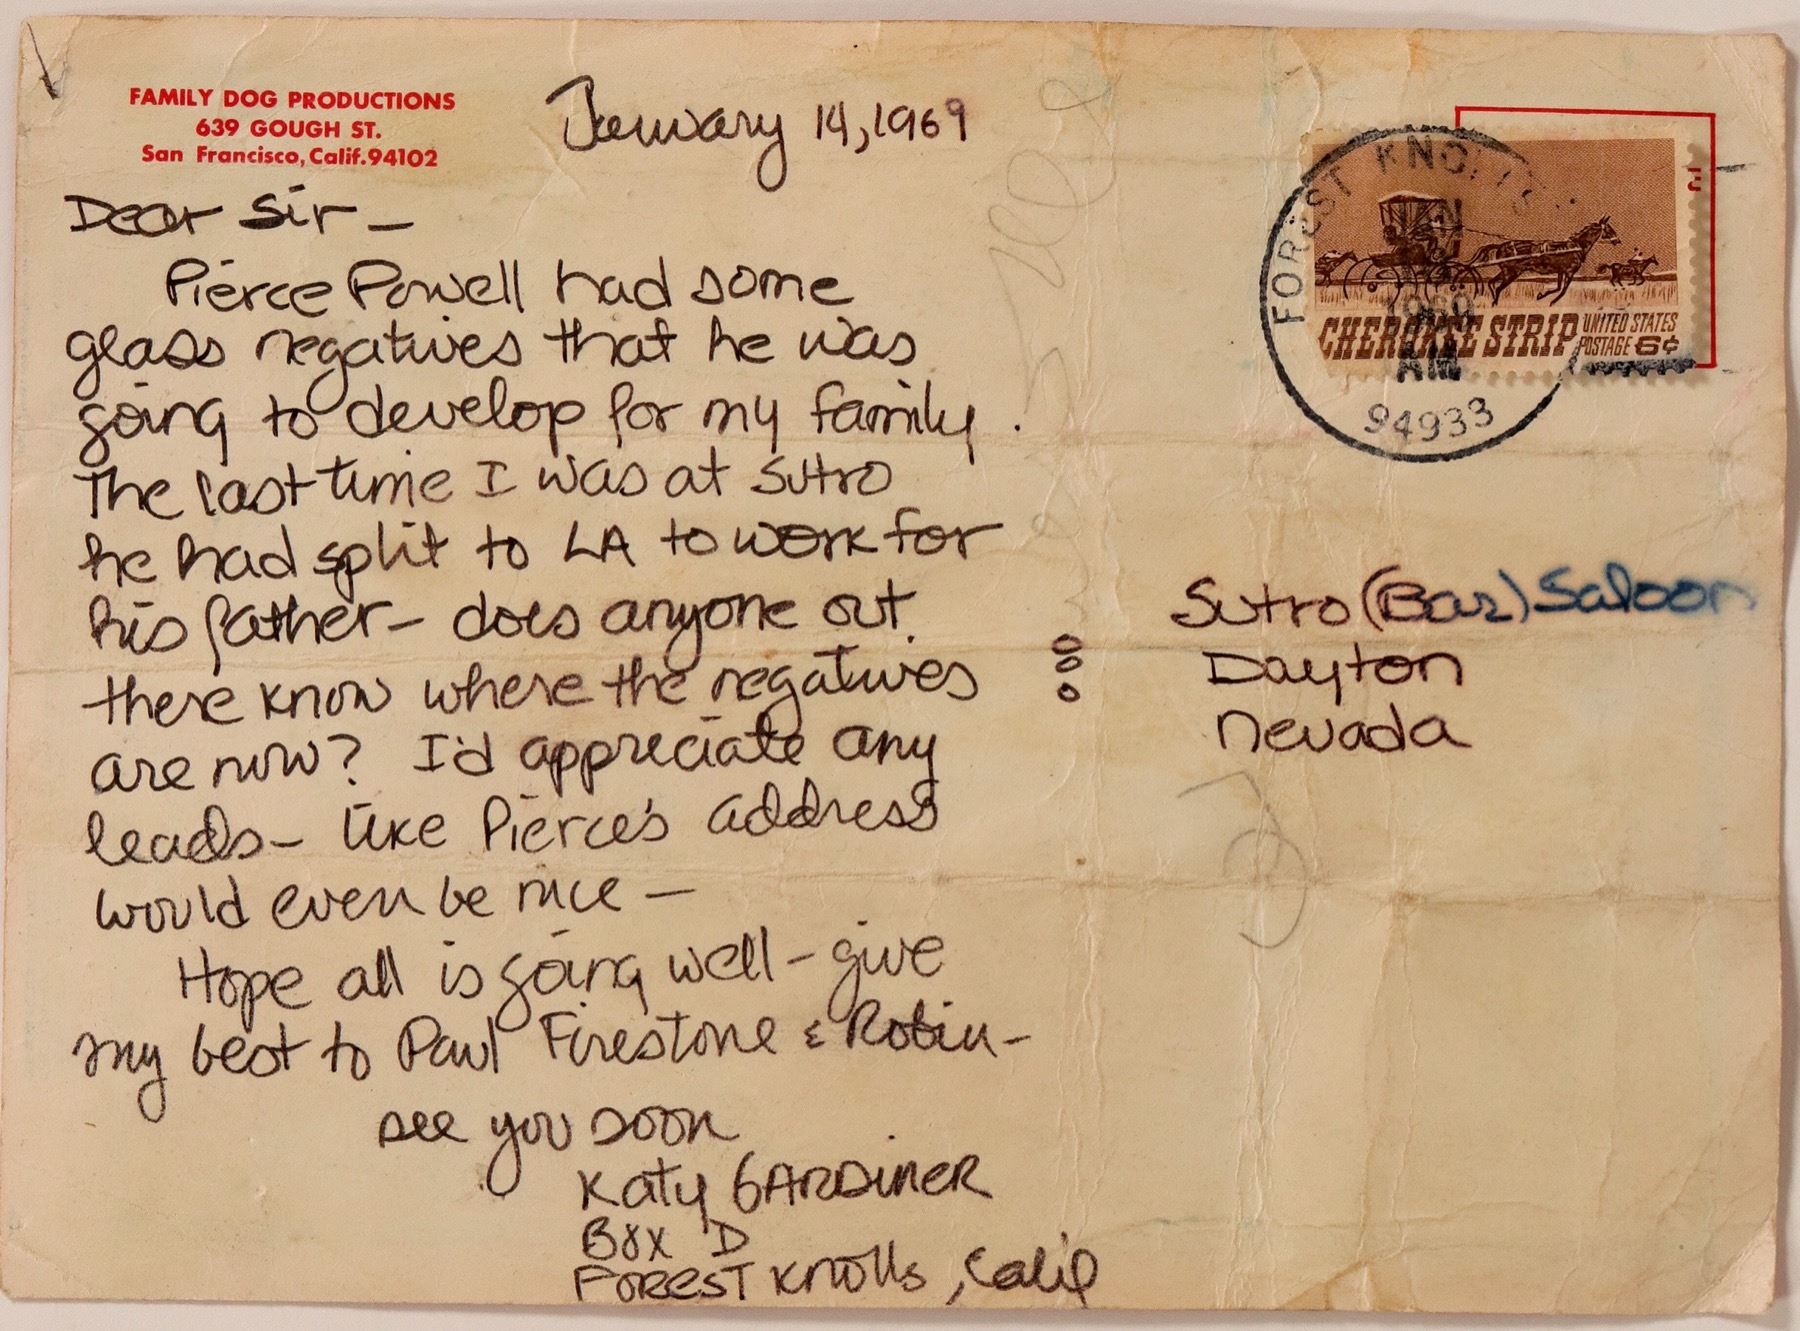 FAMILY DOG PRODUCTIONS
639 GOUGH ST.
San Francisco, Calif. 94102
January 14, 1969
Dear Sir –
Pierce Powell had some
glass negatives that he was
going to develop for my family.
The last time I was at Sutro
he had split to LA to work for
his father – does anyone out
there know where the negatives
are now? I'd appreciate any
leads – like Pierce's address
would even be nice –
Hope all is going well – give
my best to Paul Firestone & Robin –
see you soon
Katy GARDINER
Box D
FOREST Knolls, Calif
FOREST KNOLLS
JAN
1969
AM
94933
CHEROKEE STRIP UNITED STATES
POSTAGE 6¢
Sutro (Bar) Saloon
Dayton
Nevada